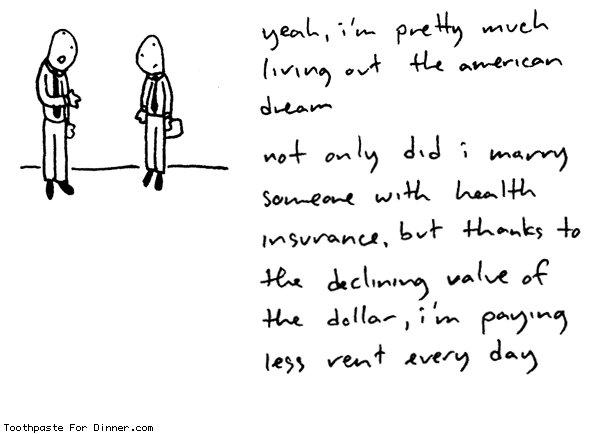 yeah, i'm pretty much
living out the american
dream
not only did i marry
someone with health
insurance, but thanks to
the declining value of
the dollar, i'm paying
less rent every day
Toothpaste For Dinner.com